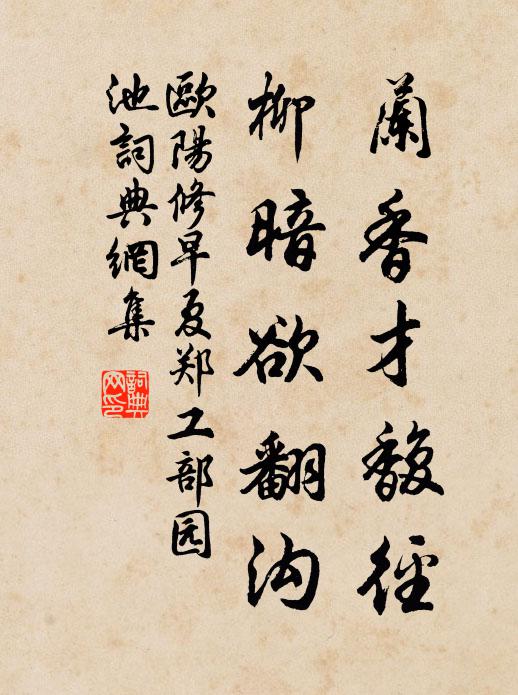 蘭香才馥徑
柳暗欲翻沟
歐陽修早夏郑工部园
池詞典網集
詞典
网印